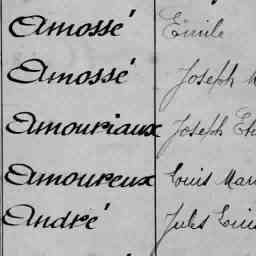 Amossé Émile
Amossé Joseph
Amouriaux Joseph
Amoureux Louis
André Jules Louis